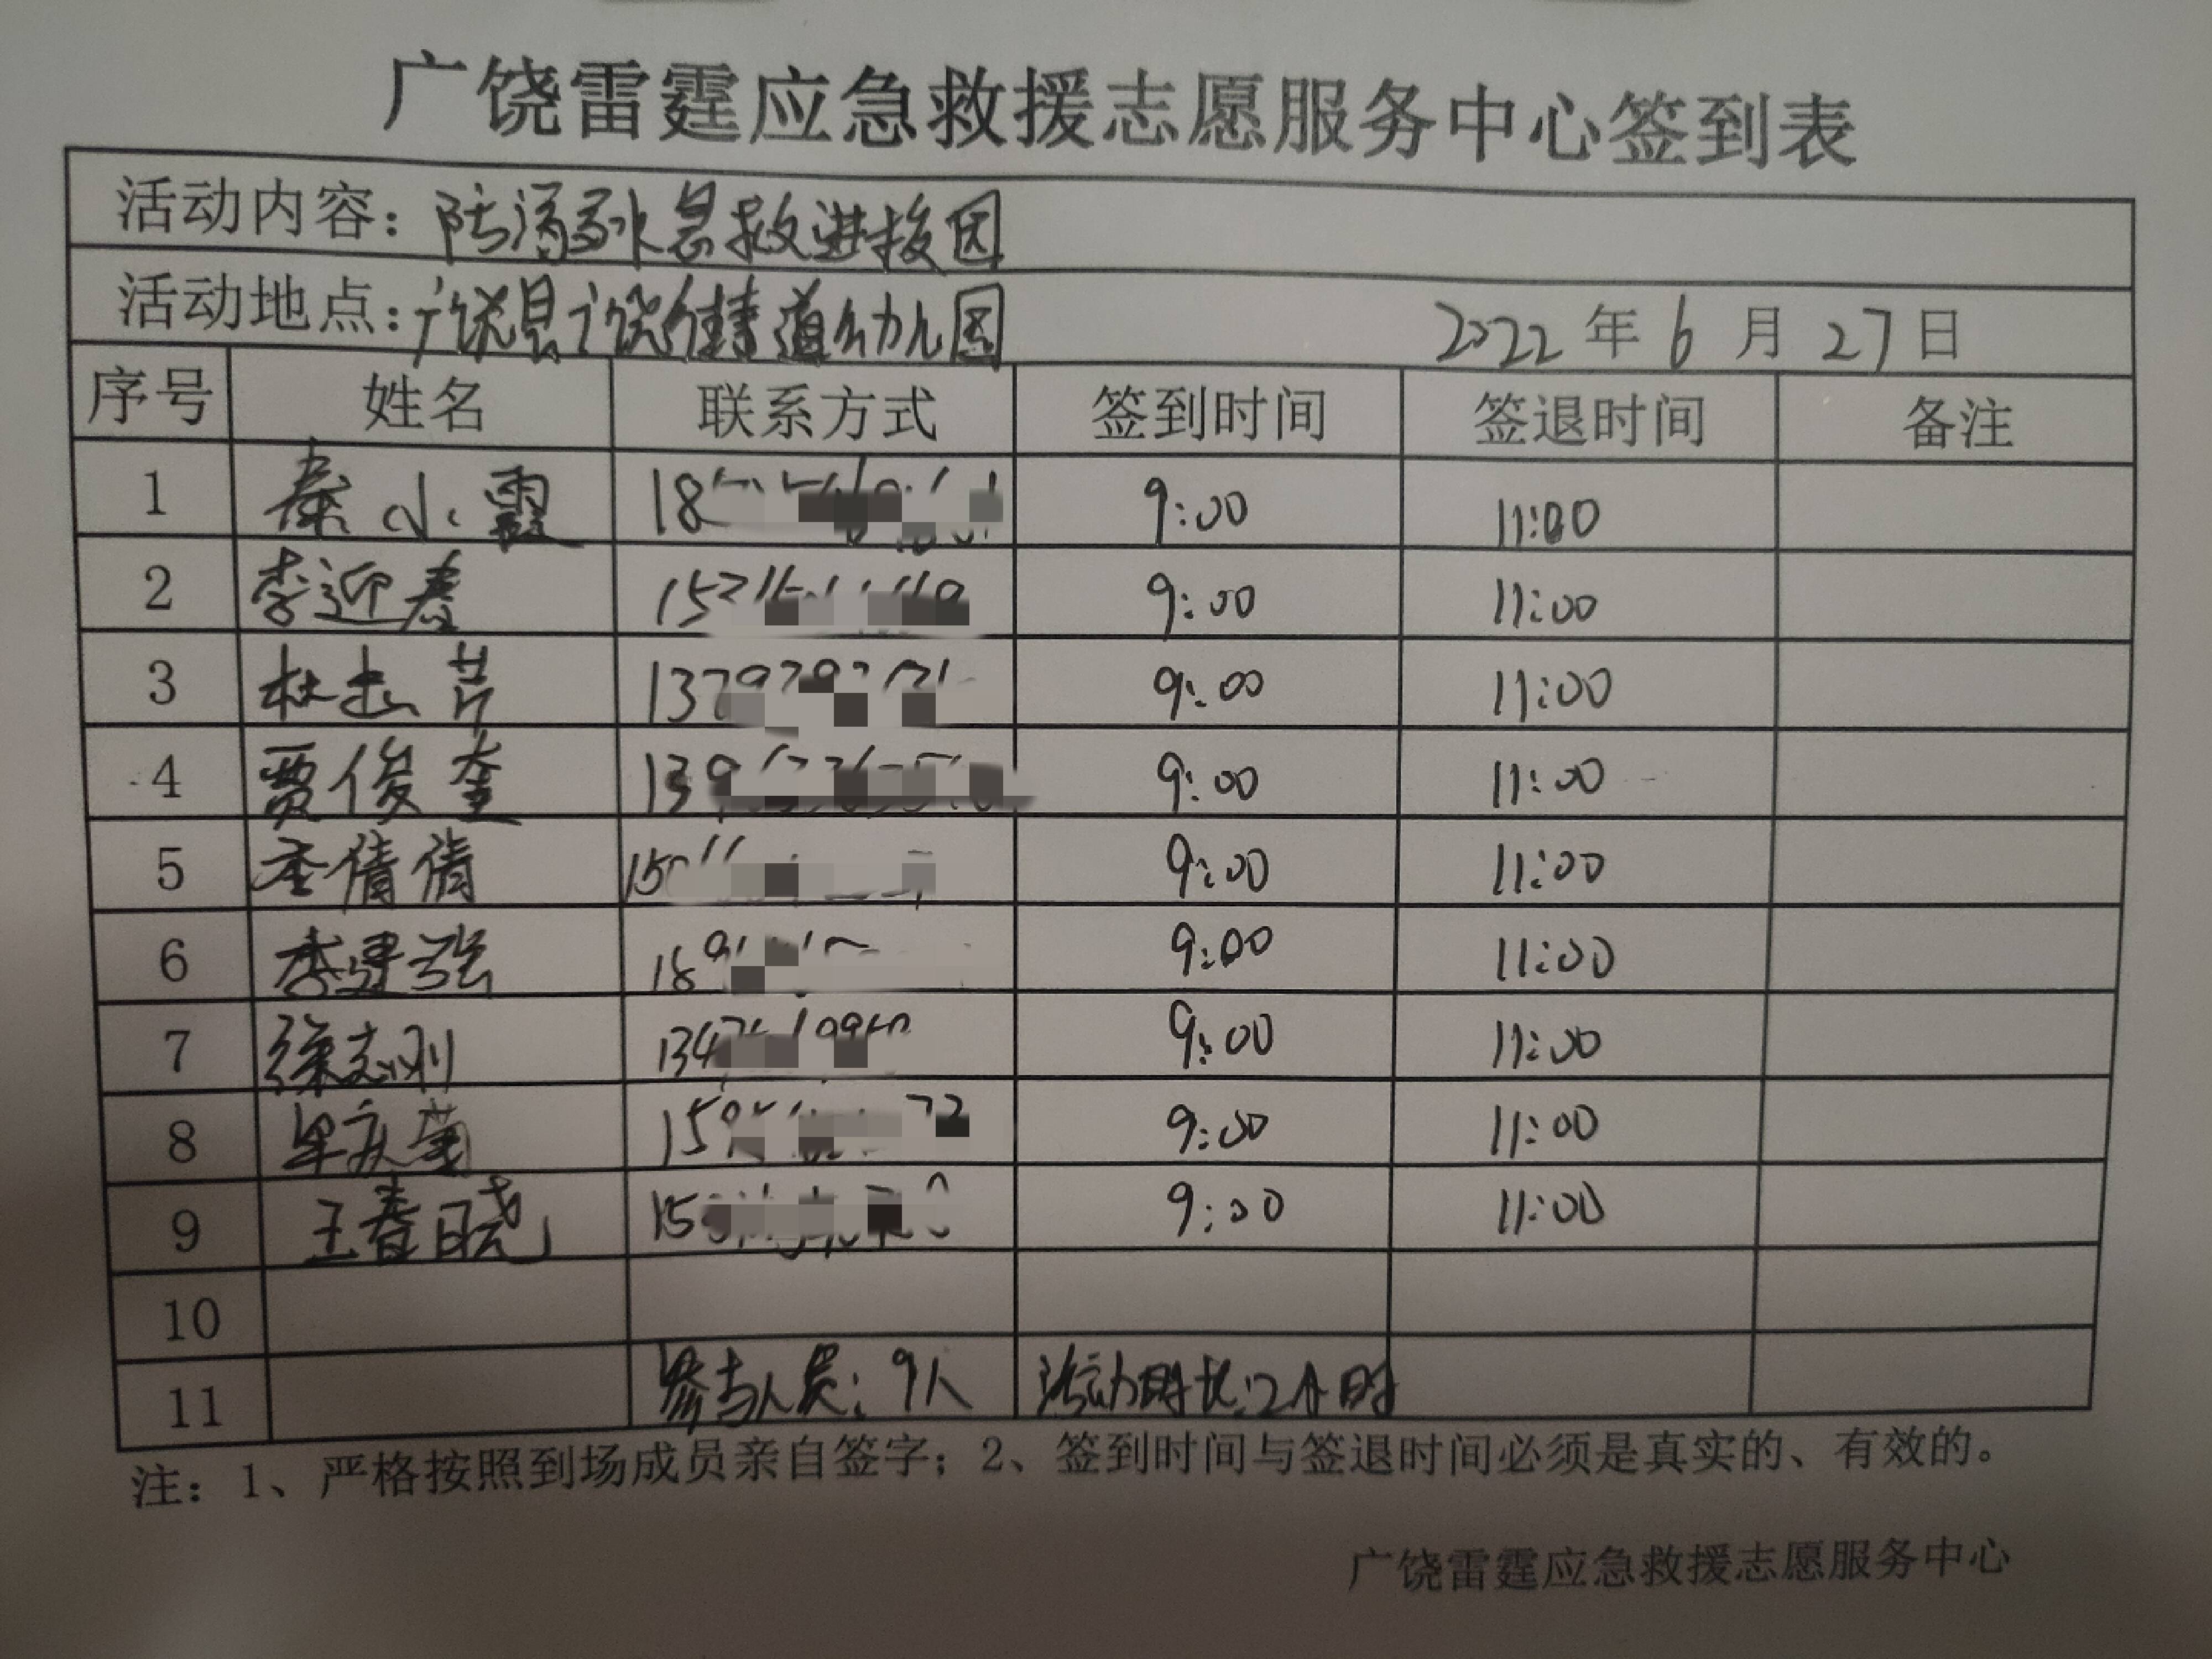 广饶雷霆应急救援志愿服务中心签到表
活动内容：防溺水急救进校园
活动地点：广饶县广饶街道幼儿园 2022年6月27日
序号 姓名 联系方式 签到时间 签退时间 备注
1 秦小霞 18 9:00 11:00
2 李迎春 15 9:00 11:00
3 杜 芹 137 9:00 11:00
4 贾俊奎 139 9:00 11:00
5 李倩倩 150 9:00 11:00
6 李建强 189 9:00 11:00
7 徐志刚 134 9:00 11:00
8 牟庆 9:00 11:00
9 王春晓 15 9:00 11:00
10
11 参与人员：9人 活动时长：2小时
注：1、严格按照到场成员亲自签字；2、签到时间与签退时间必须是真实的、有效的。
广饶雷霆应急救援志愿服务中心